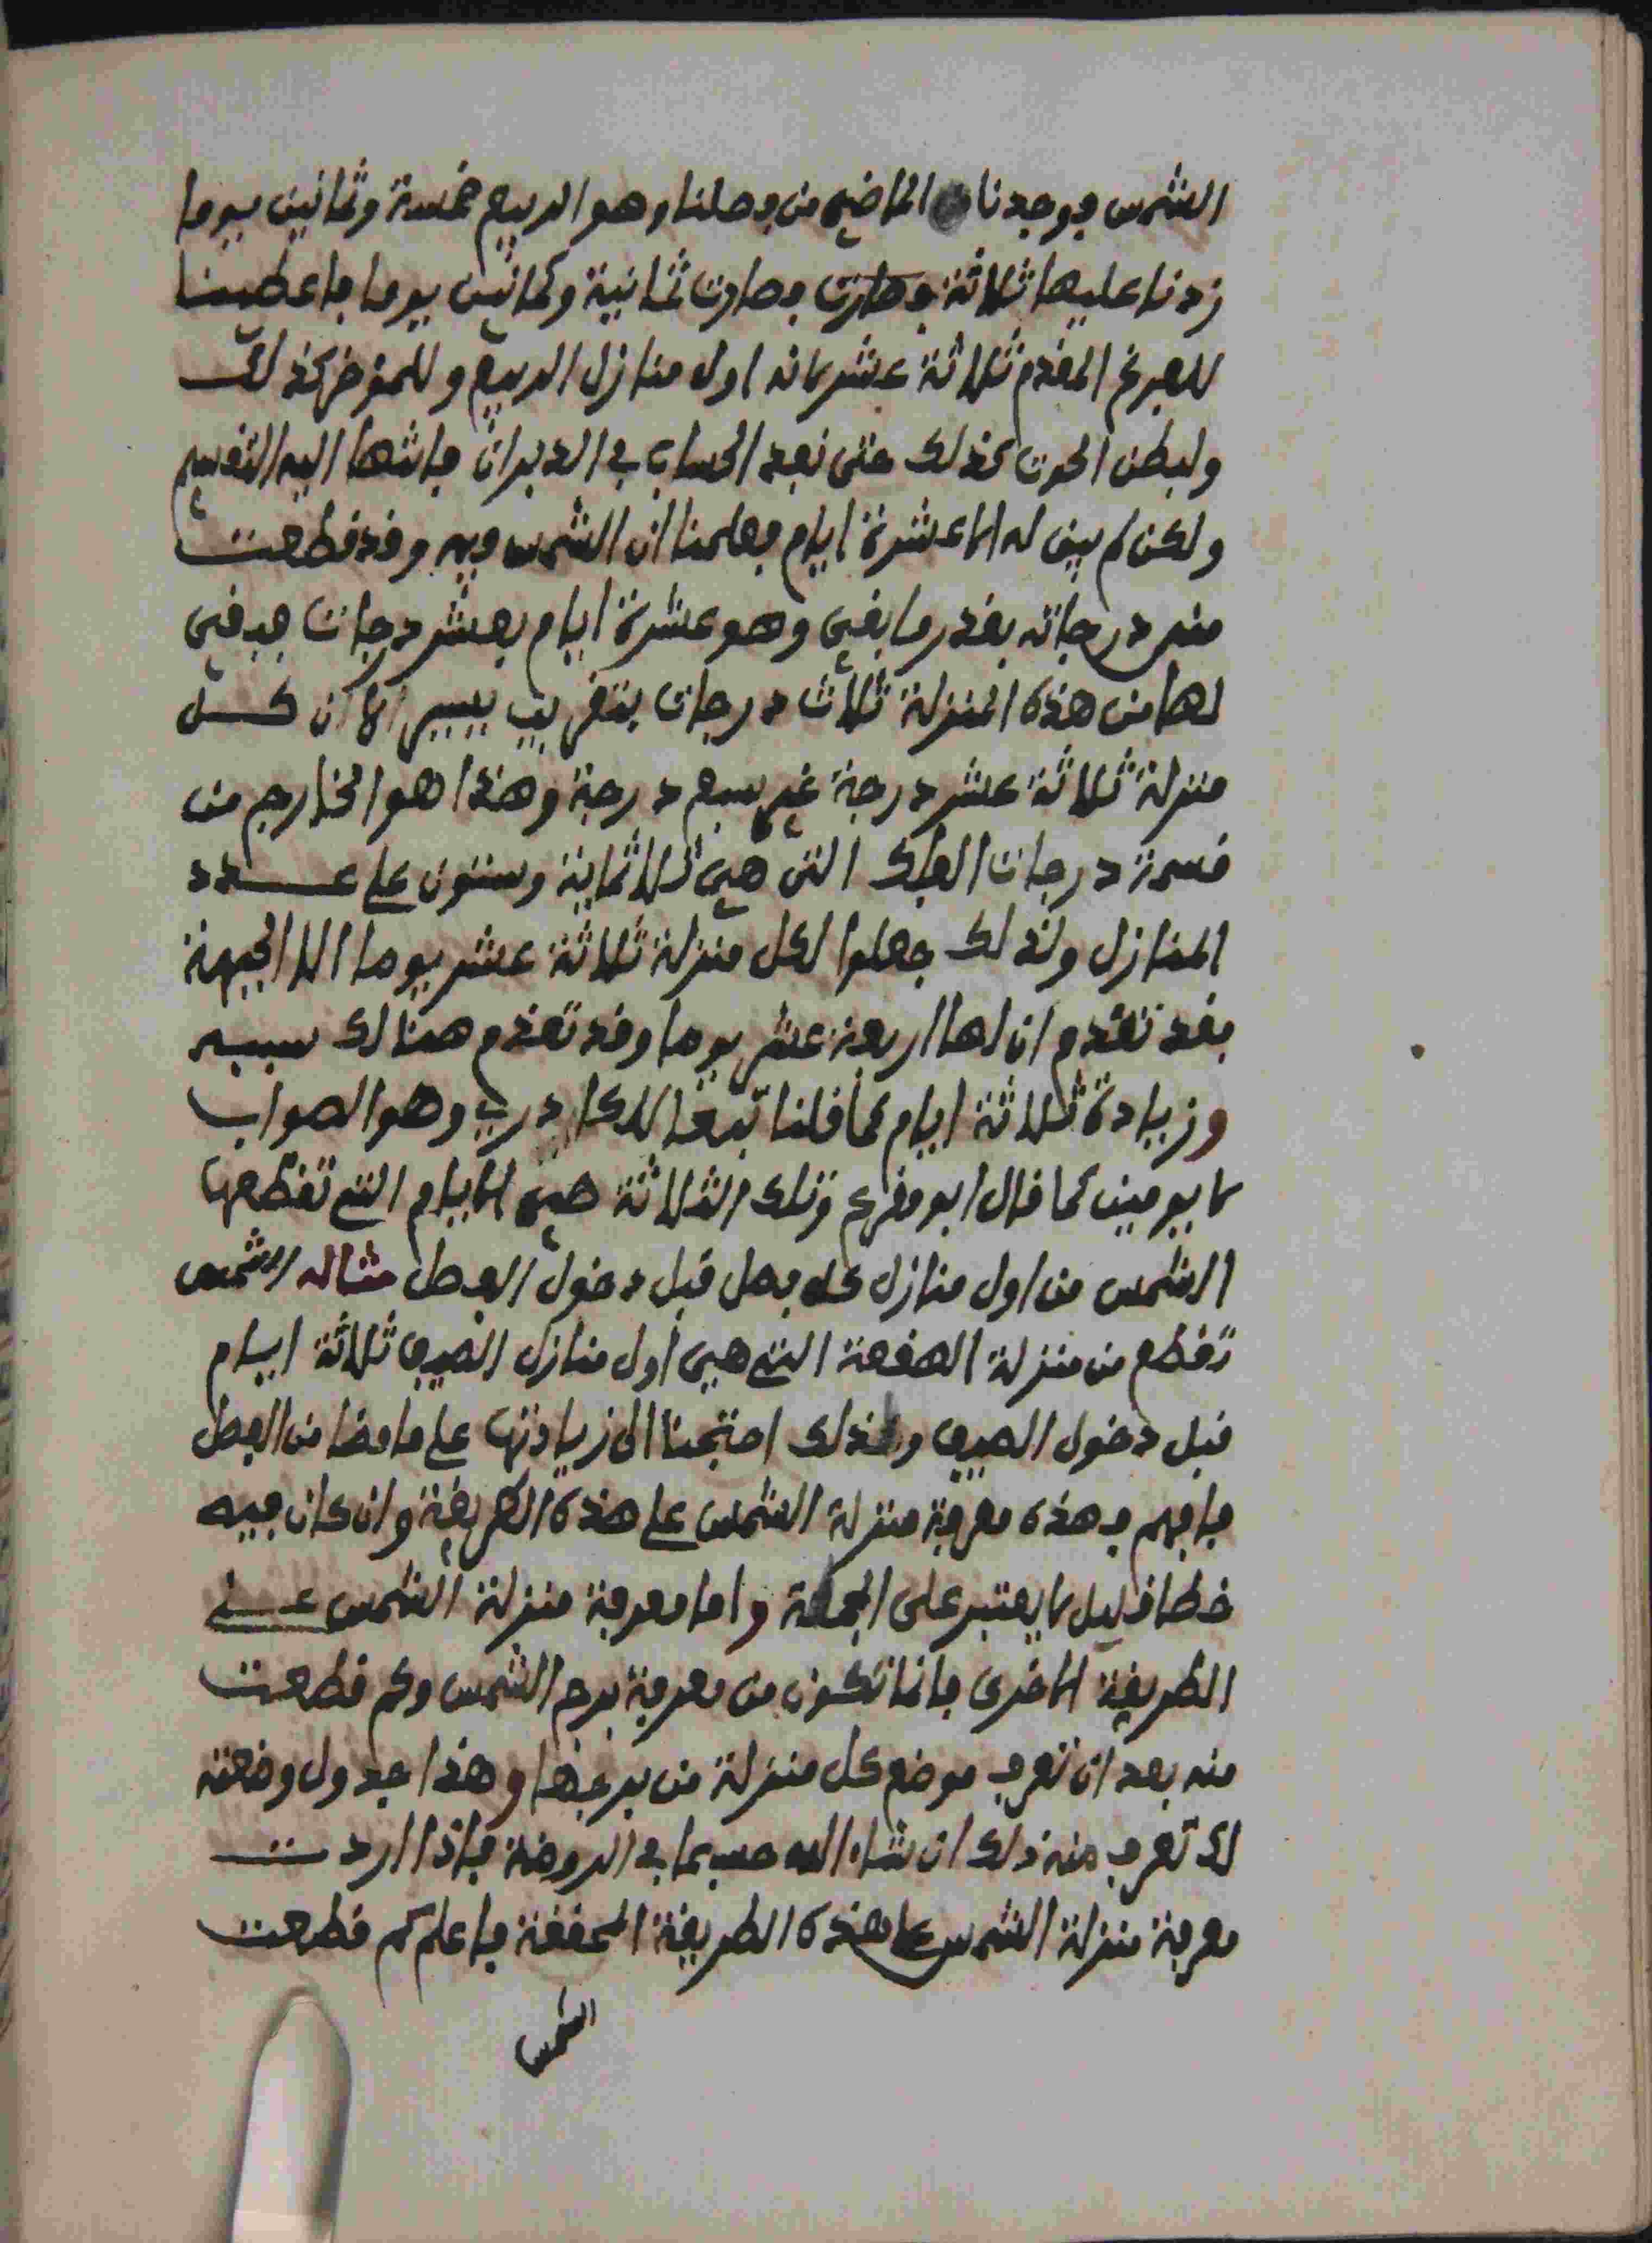 الشمس فوجدنا الماضي من فصلنا وهو الربيع خمسة وثمانين يوما
زدنا عليها ثلاثة فصارت فصارت ثمانية وثمانين يوما فاعطينا
للفرغ المقدم ثلاثة عشر لانه اول منازل الربيع وللمؤخر كذلك
ولبطن الحوت كذلك حتى نفد الحساب في الدبران فانتها اليه التقسيم
ولكن لم يبق له الا عشرة ايام فعلمنا ان الشمس فيه وقد قطعت
من درجاته بقدر ما بقي وهو عشرة ايام بعشر درجات فبقي
لها من هذه المنزلة ثلاث درجات بتقريب يسير لان كل
منزلة ثلاثة عشر درجة غير سبع درجة وهذا هو الخارج من
قسمة درجات الفلك التي هي ثلاثماية وستون على عدد
المنازل ولذلك جعلوا لكل منزلة ثلاثة عشر يوما الا الجبهة
فقد تقدم ان لها اربعة عشر يوما وقد تقدم هنالك سببه
وزيادة ثلاثة ايام كما قلنا تبعا للدكادري وهو الصواب
لا يومين كما قال ابو مقرع وتلك الثلاثة هي الايام التي تقطعها
الشمس من اول منازل كل فصل قبل دخول الفصل مثاله الشمس
تقطع من منزلة الهقعة التي هي اول منازل الصيف ثلاثة ايام
قبل دخول الصيف ولذلك احتجنا الى زيادتها على ما مضا من الفصل
فافهم فهذه معرفة منزلة الشمس على هذه الطريقة وان كان فيه
خطا قليل لا يعتبر على الجملة واما معرفة منزلة الشمس على
الطريقة الاخرى فانما تكون من معرفة برج الشمس وكم قطعت
منه بعد ان تعرف موضع كل منزلة من برجها وهذا جدول وضعته
لك تعرف منه ذلك ان شاء الله حسبما في الروضة فاذا اردت
معرفة منزلة الشمس على هذه الطريقة المحققة فاعلم كم قطعت
الشمس